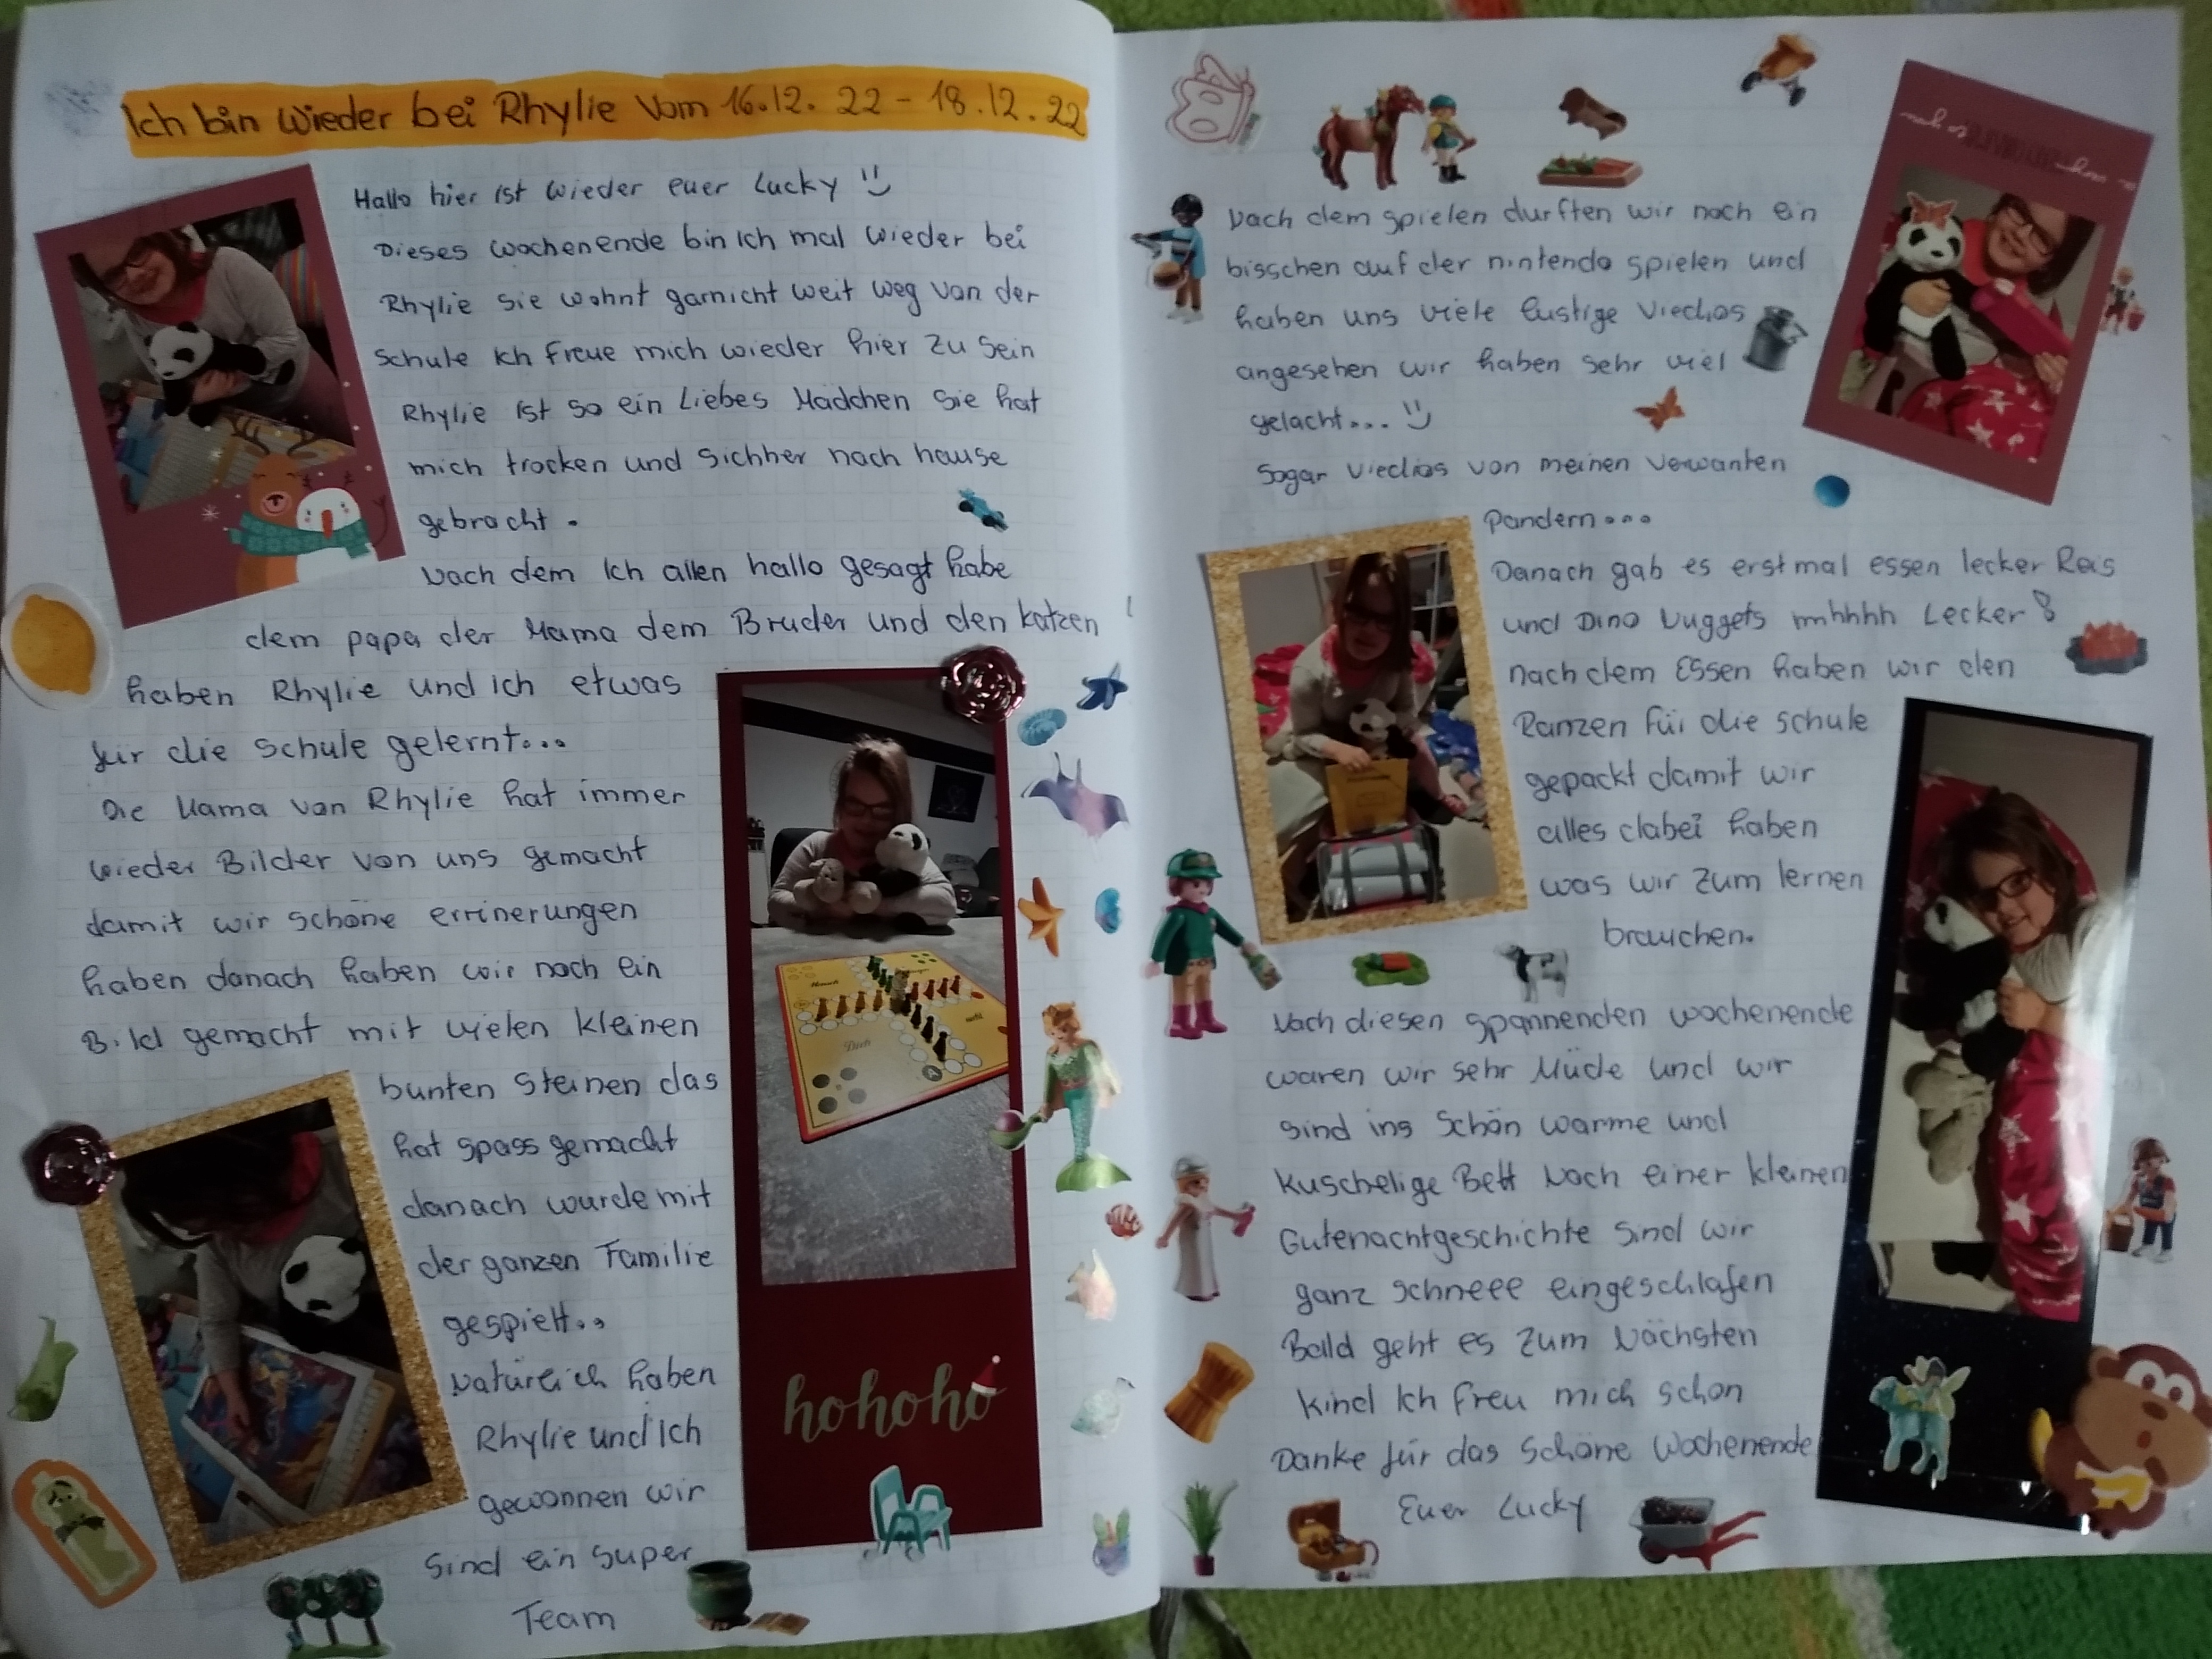 Ich bin wieder bei Rhylie vom 16.12.22 - 18.12.22
Hallo hier ist wieder euer Lucky
Dieses wochenende bin ich mal wieder bei
Rhylie sie wohnt garnicht weit weg von der
schule ich freue mich wieder hier zu sein
Rhylie ist so ein Liebes Mädchen Sie hat
mich trocken und sichher nach hause
gebracht.
Nach dem Ich allen hallo gesagt habe
dem papa der Mama dem Bruder und den katzen
haben Rhylie und ich etwas
für die schule gelernt...
Die Mama von Rhylie hat immer
wieder Bilder von uns gemacht
damit wir schöne errinerungen
haben danach haben wir noch ein
Bild gemacht mit vielen kleinen
bunten Steinen das
hat spass gemacht
danach wurde mit
der ganzen Familie
gespielt..
Natürlich haben
Rhylie und Ich
gewonnen wir
sind ein super
Team
hohoho
Nach dem spielen durften wir noch ein
bisschen auf der nintendo spielen und
haben uns viele lustige Viedios
angesehen wir haben sehr viel
gelacht...
Sogar Viedios von meinen verwanten
Pandern...
Danach gab es erstmal essen lecker Reis
und Dino Nuggets mhhhh Lecker
nach dem Essen haben wir den
Ranzen für die schule
gepackt damit wir
alles dabei haben
was wir zum lernen
brauchen.
Nach diesen spannenden wochenende
waren wir sehr Müde und wir
sind ins Schön warme und
kuschelige Bett Nach einer kleinen
Gutenachtgeschichte sind wir
ganz schnell eingeschlafen
Bald geht es zum Nächsten
kind Ich freu mich schon
Danke für das Schöne Wochenende
Euer Lucky